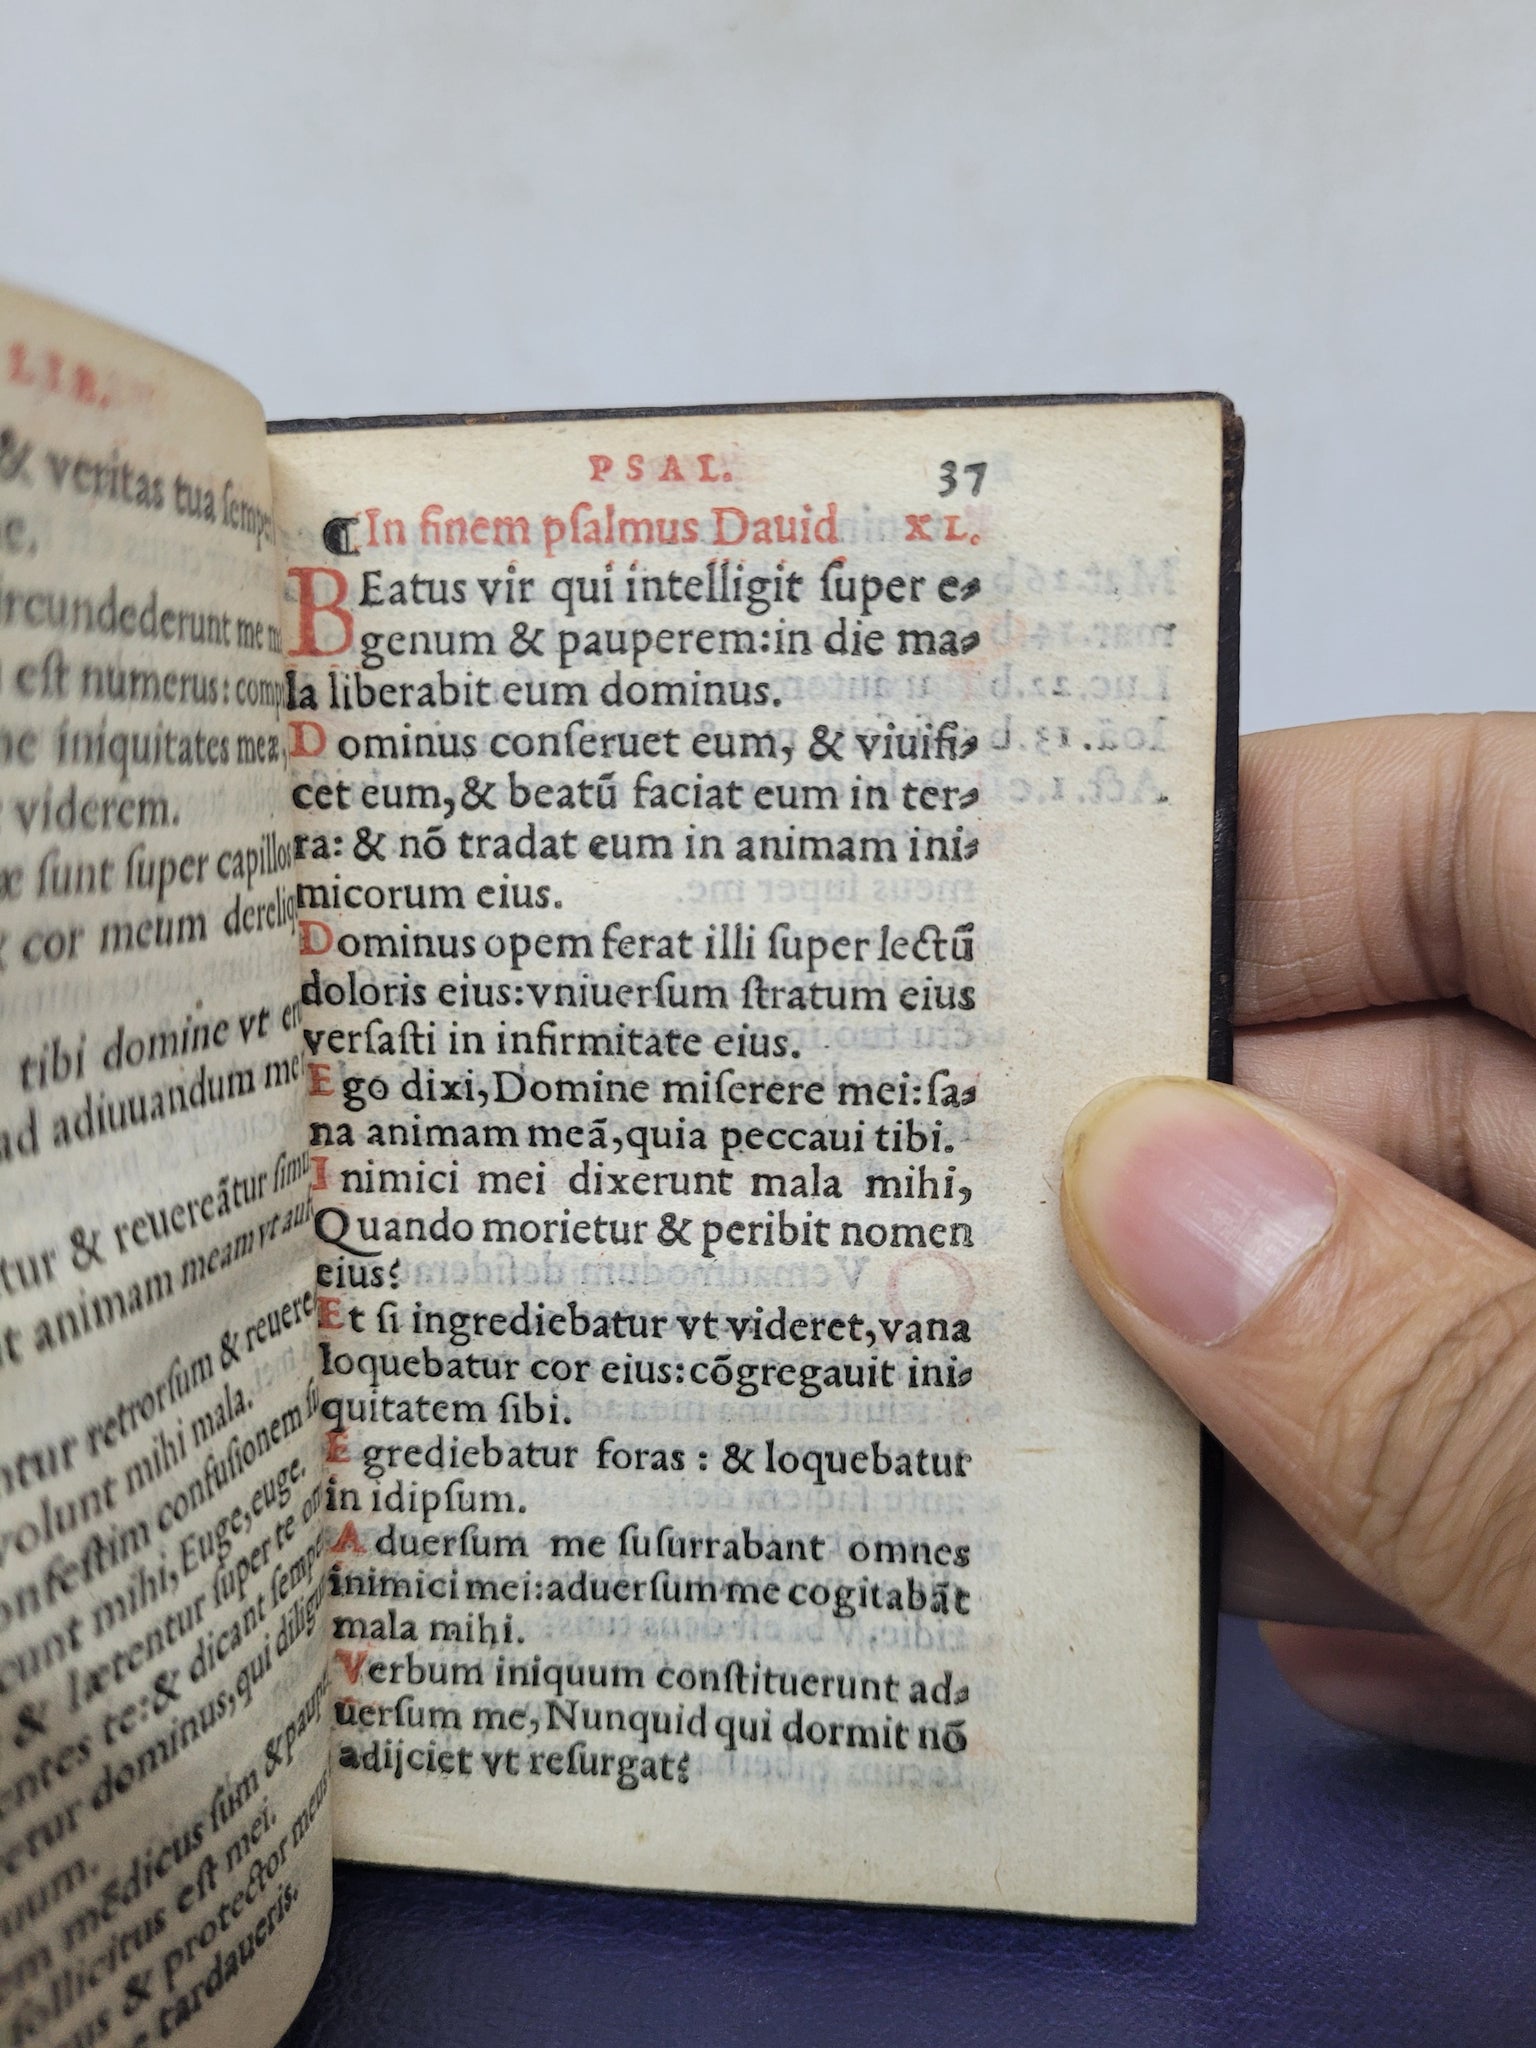 LIB.
& veritas tua semper
e.
ircundederunt me
est numerus: comp
iniquitates meæ,
viderem.
sunt super capillos
cor meum dereliq
tibi domine vt
ad adiuuandum me
tur & reuereãtur simu
t animam meam vt auf
ntur retrorsum & reuere
volunt mihi mala.
onfestim confusionem su
cunt mihi, Euge, euge.
& lætentur super te om
entes te: & dicant sempe
etur dominus, qui diligu
uum.
em mẽdicus sum & paup
sollicitus est mei.
us & protector meus
e tardaueris.
PSAL. 37
¶In finem psalmus Dauid XL.
BEatus vir qui intelligit super e⸗
genum & pauperem:in die ma⸗
la liberabit eum dominus.
Dominus conseruet eum, & viuifi⸗
cet eum,& beatũ faciat eum in ter⸗
ra: & nõ tradat eum in animam ini⸗
micorum eius.
Dominus opem ferat illi super lectũ
doloris eius:vniuersum stratum eius
versasti in infirmitate eius.
Ego dixi,Domine miserere mei:sa⸗
na animam meã,quia peccaui tibi.
Inimici mei dixerunt mala mihi,
Quando morietur & peribit nomen
eius?
Et si ingrediebatur vt videret,vana
loquebatur cor eius:cõgregauit ini⸗
quitatem sibi.
Egrediebatur foras : & loquebatur
in idipsum.
Aduersum me susurrabant omnes
inimici mei:aduersum me cogitabãt
mala mihi.
Verbum iniquum constituerunt ad⸗
uersum me, Nunquid qui dormit nõ
adijciet vt resurgat?